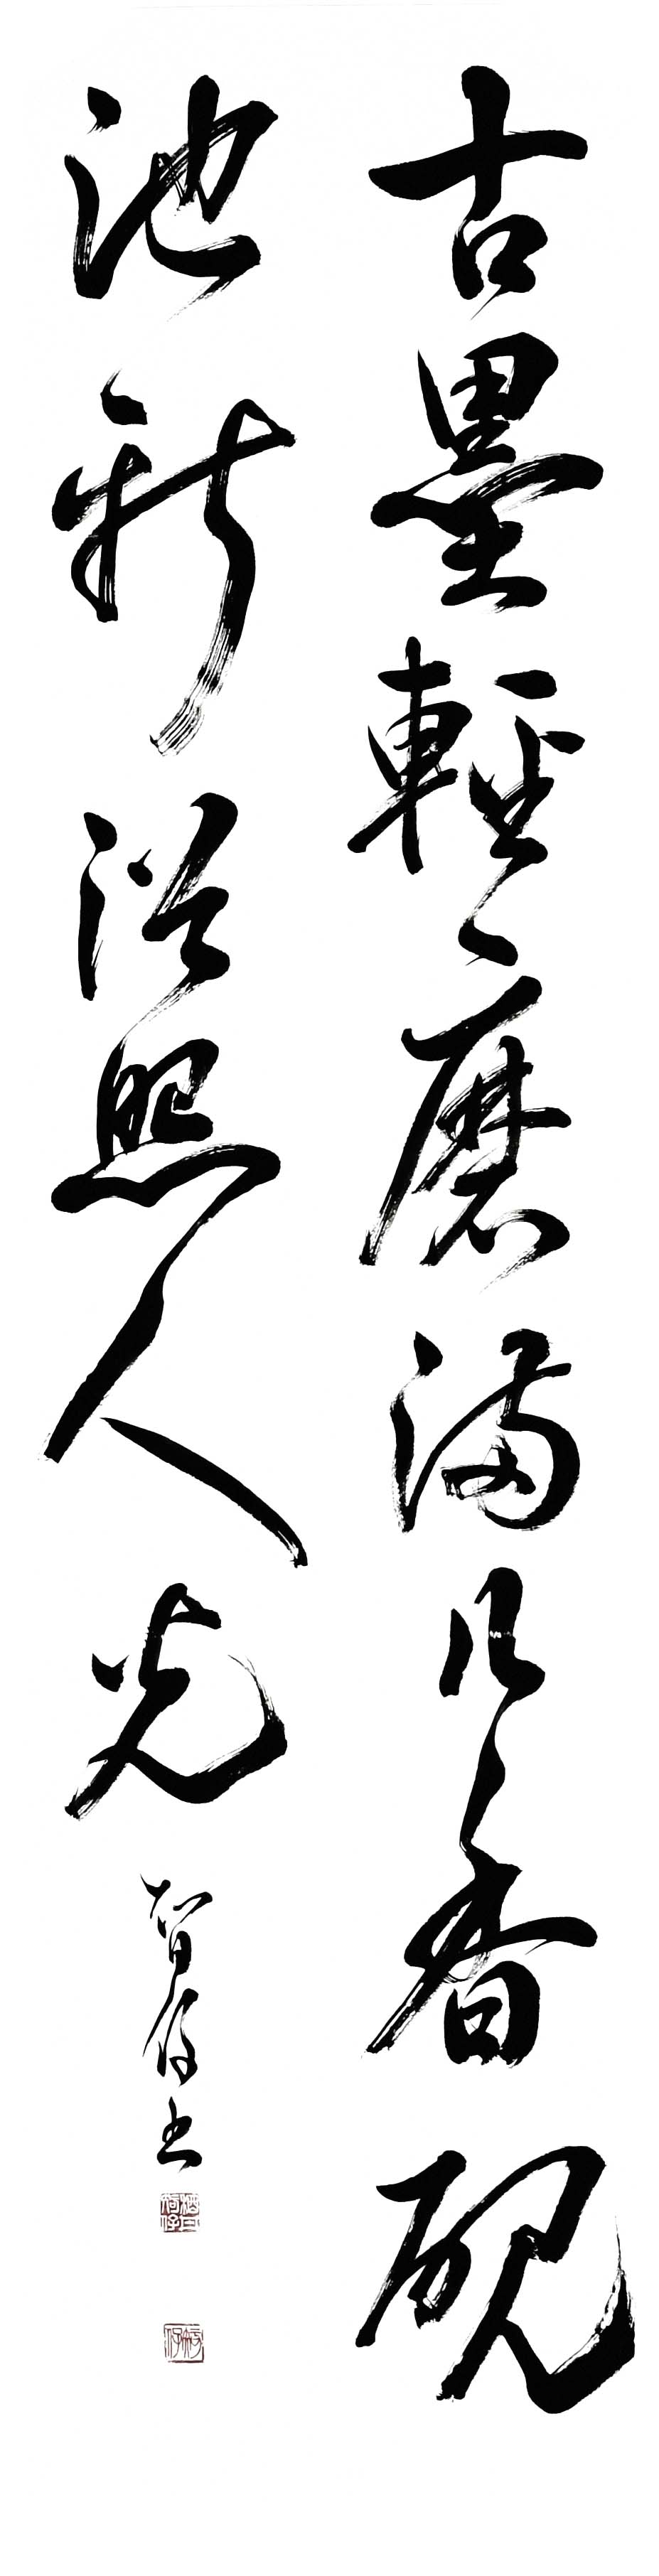 古墨輕磨满几香硯
池新浴照人光